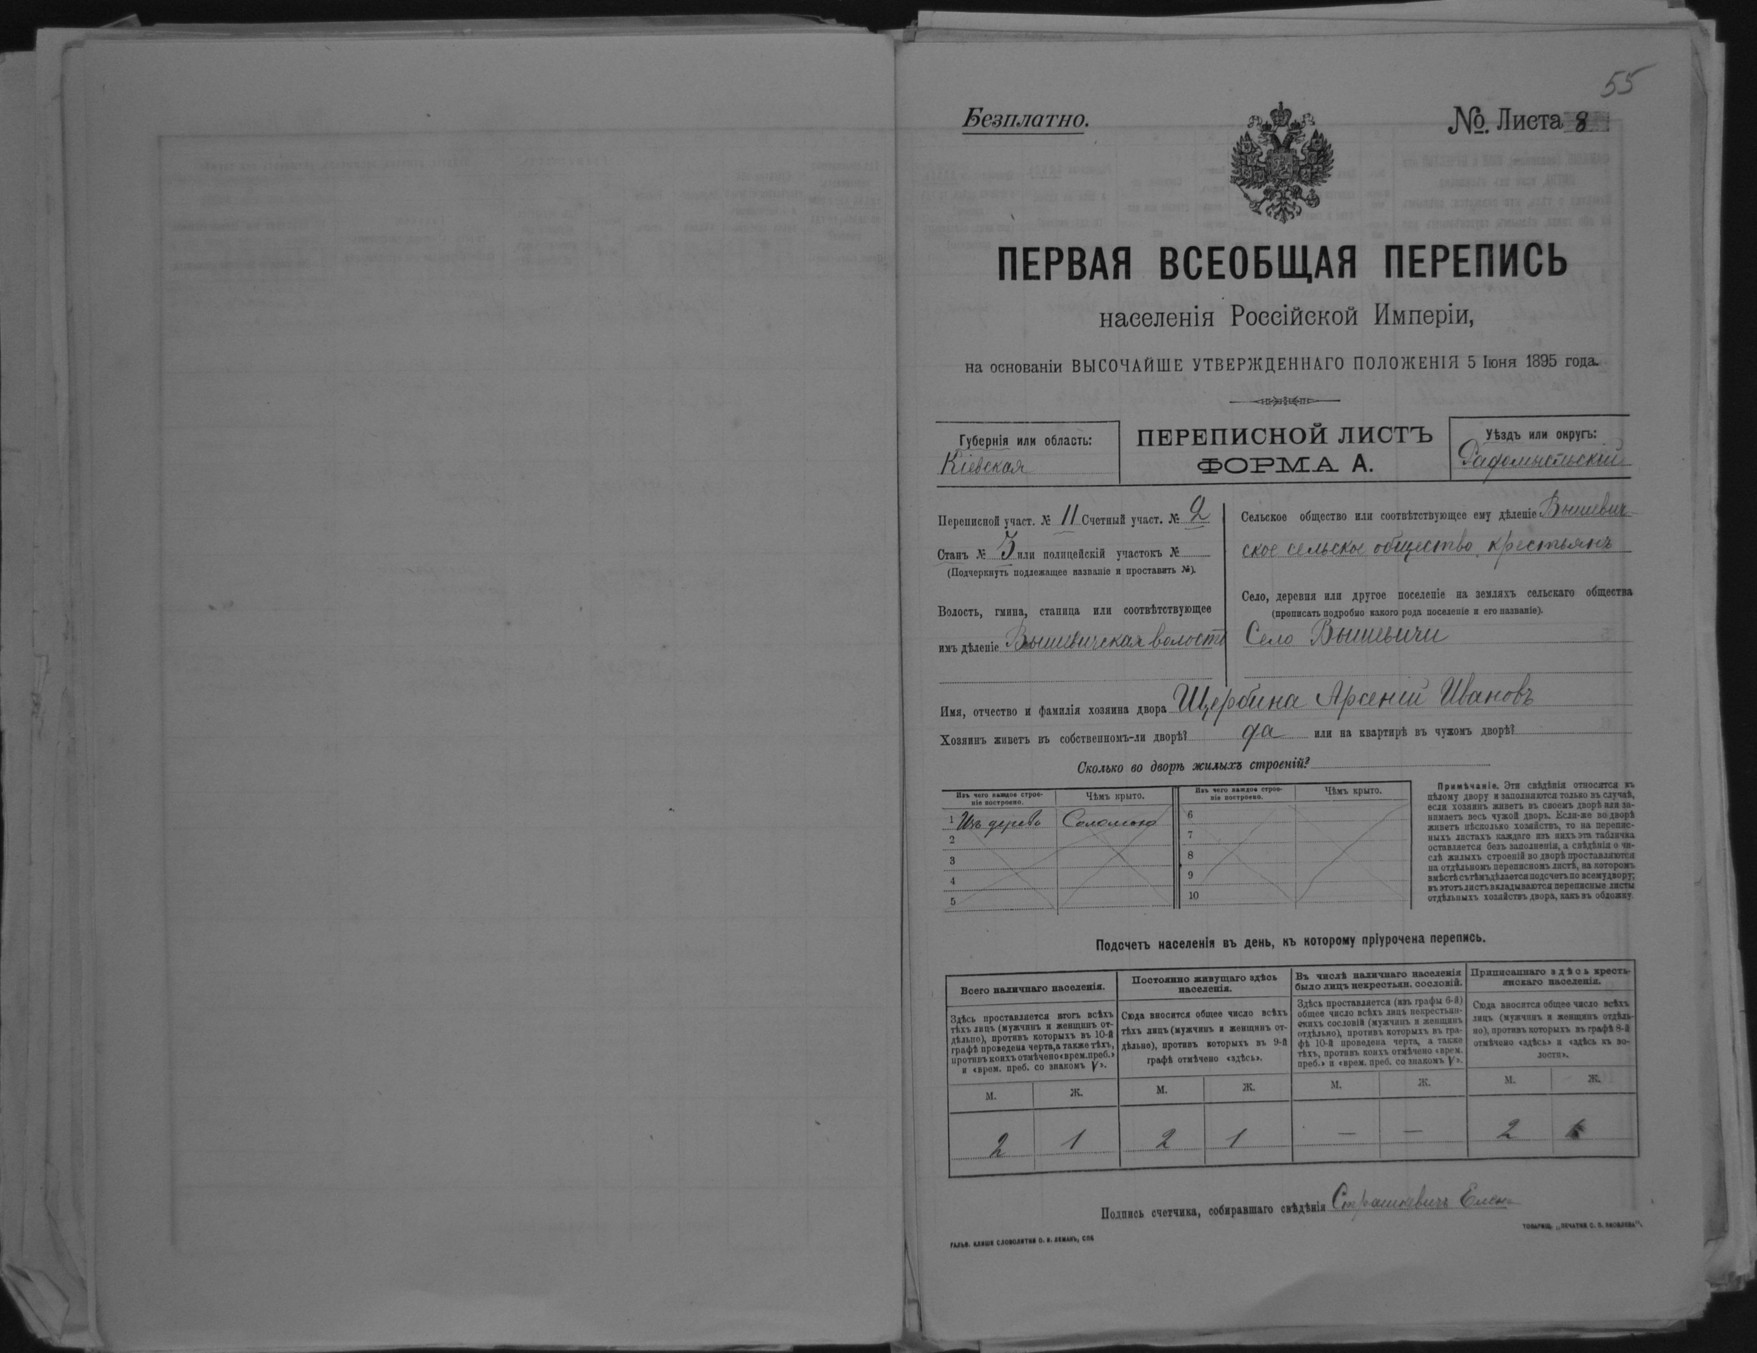 55
Безплатно.
№. Листа 8
ПЕРВАЯ ВСЕОБЩАЯ ПЕРЕПИСЬ
населенія Россійской Имперіи,
на основаніи ВЫСОЧАЙШЕ УТВЕРЖДЕННАГО ПОЛОЖЕНІЯ 5 Іюня 1895 года.
Губернія или область:
Кіевская
ПЕРЕПИСНОЙ ЛИСТЪ
ФОРМА А.
Уѣздъ или округъ:
Радомысльскій
Переписной участ. № 11 Счетный участ. № 2
Станъ № 3 или полицейскій участокъ №
(Подчеркнуть подлежащее названіе и проставить №).
Волость, гмина, станица или соотвѣтствующее
имъ дѣленіе Вышевичская волость
Сельское общество или соотвѣтствующее ему дѣленіе Вышевич
ское сельское общество, крестьянъ
Село, деревня или другое поселеніе на земляхъ сельскаго общества
(прописать подробно какого рода поселеніе и его названіе).
Село Вышевичи
Имя, отчество и фамилія хозяина двора Щербина Арсеній Ивановъ
Хозяинъ живетъ въ собственномъ-ли дворѣ? да или на квартирѣ въ чужомъ дворѣ?
Сколько во дворѣ жилыхъ строеній?
Изъ чего каждое строе-
ніе построено.
Чѣмъ крыто.
1 Изъ дерева Соломою
2
3
4
5
Изъ чего каждое строе-
ніе построено.
Чѣмъ крыто.
6
7
8
9
10
Примѣчаніе. Эти свѣдѣнія относятся къ
цѣлому двору и заполняются только въ случаѣ,
если хозяинъ живетъ въ своемъ дворѣ или за-
нимаетъ весь чужой дворъ. Если-же во дворѣ
живетъ нѣсколько хозяйствъ, то на перепис-
ныхъ листахъ каждаго изъ нихъ эта табличка
оставляется безъ заполненія, а свѣдѣнія о чи-
слѣ жилыхъ строеній во дворѣ проставляются
на отдѣльномъ переписномъ листѣ, на которомъ
вмѣстѣ съ тѣмъ дѣлается подсчетъ по всему двору;
въ этотъ листъ вкладываются переписные листы
отдѣльныхъ хозяйствъ двора, какъ въ обложку.
Подсчетъ населенія въ день, къ которому пріурочена перепись.
Всего наличнаго населенія.
Здѣсь проставляется итогъ всѣхъ
тѣхъ лицъ (мужчинъ и женщинъ от-
дѣльно), противъ которыхъ въ 10-й
графѣ проведена черта, а также тѣхъ,
противъ коихъ отмѣчено «врем. преб.»
и «врем. преб. со знакомъ V».
М. Ж.
2 1
Постоянно живущаго здѣсь
населенія.
Сюда вносится общее число всѣхъ
тѣхъ лицъ (мужчинъ и женщинъ от-
дѣльно), противъ которыхъ въ 9-й
графѣ отмѣчено «здѣсь».
М. Ж.
2 1
Въ числѣ наличнаго населенія
было лицъ некрестьян. сословій.
Здѣсь проставляется (изъ графы 6-й)
общее число всѣхъ лицъ некрестьян-
скихъ сословій (мужчинъ и женщинъ
отдѣльно), противъ которыхъ въ гра-
фѣ 10-й проведена черта, а также
тѣхъ, противъ коихъ отмѣчено «врем.
преб.» и «врем. преб. со знакомъ V».
М. Ж.
— —
Приписаннаго здѣсь кресть-
янскаго населенія.
Сюда вносится общее число всѣхъ
лицъ (мужчинъ и женщинъ отдѣль-
но), противъ которыхъ въ графѣ 8-й
отмѣчено «здѣсь» и «здѣсь въ во-
лости».
М. Ж.
2
Подпись счетчика, собиравшаго свѣдѣнія Страшкевичъ Елена
ГАЛЬВ. КЛИШЕ СЛОВОЛИТНИ О. И. ЛЕМАНЪ, СПБ
ТОВАРИЩ. „ПЕЧАТНЯ С. П. ЯКОВЛЕВА".